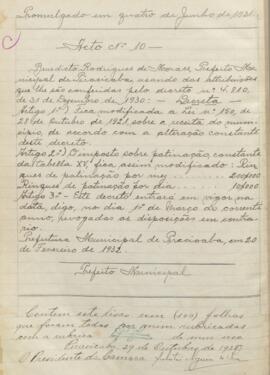 Promulgado em quatro de Junho de 1931.
Acto Nº 10 —
Benedicto Rodrigues de Moraes, Prefeito Mu-
nicipal de Piracicaba, usando das attribuições
que lhe são conferidas pelo decreto nº 4.810,
de 31 de Dezembro de 1930: — Decreta —
Artigo 1º) Fica modificada a Lei nº 150, de
28 de Outubro de 1921 sobre a receita do muni-
cipio, de accordo com a alteração constante
deste decreto.
Artigo 2º) O imposto sobre patinação, constante
da Tabella XV, fica assim modificado: Rin-
ques de patinação por mez 200$000
Rinques de patinação por dia 10$000
Artigo 3º — Este decreto entrará em vigor na
data, digo, no dia 1º de Março do corrente
anno, revogadas as disposições em contra-
rio.
Prefeitura Municipal de Piracicaba, em 20
de Fevereiro de 1932.
Prefeito Municipal
Contem este livro cem (100) folhas
que foram todas por mim rubricadas
com a rubrica de meu uso
Piracicaba, 29 de Outubro de 1928
O Presidente da Camara